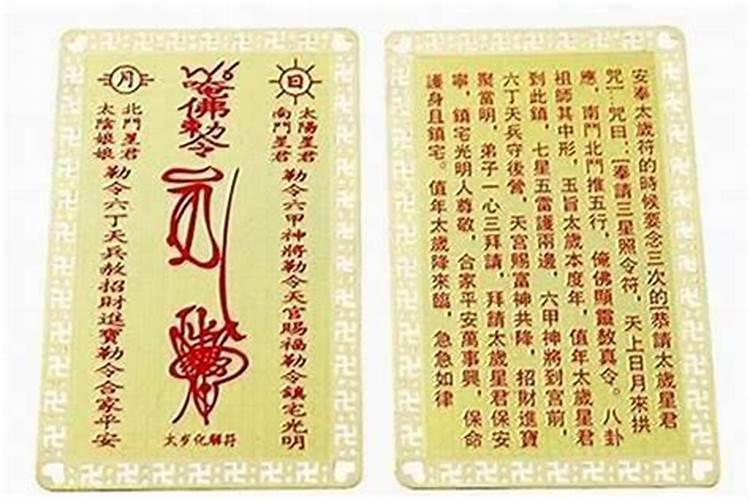 日
太陽星君
南鬥星君
勒令六甲神將勒令天官賜福勒令鎮宅光明
唵佛勅令
太歲化解符
月
北鬥星君
太陰娘娘
勒令六丁天兵赦招財進寶勒令合家平安
安奉太歲符的時候要念三次的[恭請太歲星君
咒]…咒曰:[奉請三星照令符,天上日月來拱
應,南鬥北鬥推五行,俺佛顯靈敖真令。八卦
祖師其中形,玉旨太歲本度年,值年太歲星君
到此鎮,七星五雷護兩邊,六甲神將到宮前,
六丁天兵守後營,天宮賜富神共降,招財進寶
聚當明,弟子一心三拜請,拜請太歲星君保安
寧,鎮宅光明人尊敬,合家平安萬事興,保命
護身且鎮宅。值年太歲降來臨,急急如律